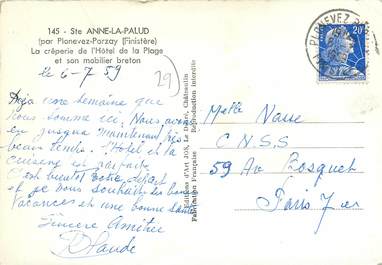 145 - Ste ANNE-LA-PALUD
(par Plonevez-Porzay (Finistère)
La crêperie de l'Hôtel de la Plage
et son mobilier breton
le 6-7 59
29
Déjà une semaine que
nous somme ici. Nous avons
eu jusqua maintenant très
beau temps. L'Hôtel et la
cuisine est parfait
C'est bientôt votre départ
et je vous souhaite de bonnes
vacances et une bonne santé
Sincère Amitiée
Editions d'Art JOS, Le Châteaulin
Fabrication Française Reproduction interdite
PLONEVEZ
20F
Melle
C.N.S.S
59 Av Bosquet
Paris 7er